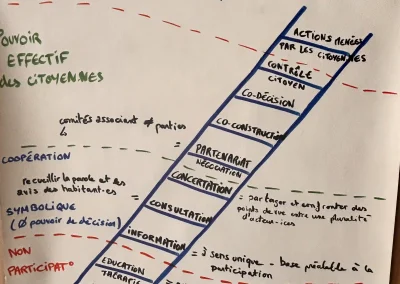 POUVOIR
EFFECTIF
des CITOYEN.NES
ACTIONS MENÉES
PAR LES CITOYEN.NES
CONTRÔLE
CITOYEN
CO-DÉCISION
CO-CONSTRUCTION
comités associant ≠ parties
=
PARTENARIAT
NÉGOCIATION
COOPÉRATION
CONCERTATION
= partager et confronter des
points de vue entre une pluralité
d'acteur-ices
recueillir la parole et les
avis des habitant.es
=
CONSULTATION
SYMBOLIQUE
(Ø pouvoir de décision)
INFORMATION
= à sens unique - base préalable à la
participation
NON
PARTICIPAT°
EDUCATION
THÉRAPIE